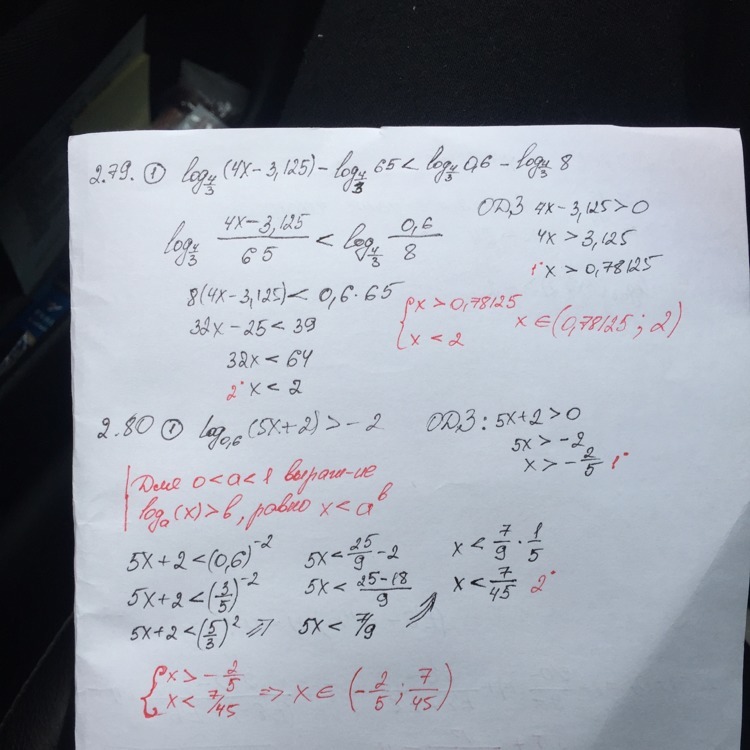 2.79. ① log_{4/3} (4x-3,125) - log_{4/3} 65 < log_{4/3} 0,6 - log_{4/3} 8
log_{4/3} \frac{4x-3,125}{65} < log_{4/3} \frac{0,6}{8}
8(4x-3,125) < 0,6·65
32x-25 < 39
32x < 64
2° x < 2
ОДЗ 4x-3,125>0
4x > 3,125
1° x > 0,78125
{x > 0,78125
x < 2
x ∈ (0,78125; 2)
2.80 ① log_{0,6} (5x+2) > -2
ОДЗ: 5x+2>0
5x > -2
x > -\frac{2}{5} 1°
Для 0<a<1 выраж-ие
log_a(x) > b, равно x < a^b
5x+2 < (0,6)^{-2}
5x+2 < (\frac{3}{5})^{-2}
5x+2 < (\frac{5}{3})^2 ⇒
5x < \frac{25}{9} - 2
5x < \frac{25-18}{9}
5x < 7/9 ⇒
x < \frac{7}{9} · \frac{1}{5}
x < \frac{7}{45} 2°
{x > -\frac{2}{5}
x < 7/45
⇒ x ∈ (-\frac{2}{5}; \frac{7}{45})